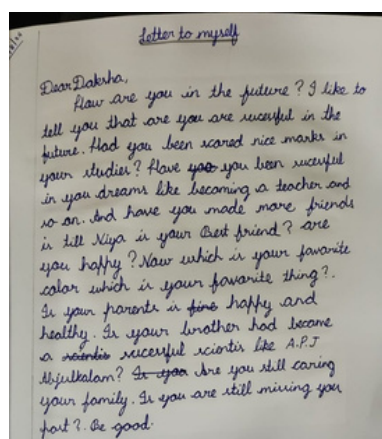 Letter to myself
Dear Daksha,
How are you in the future? I like to
tell you that are you are sucesful in the
future. Had you been scared nice marks in
your studies? Have you you been sucesful
in you dreams like becoming a teacher and
so on. And have you made more friends
is till Niya is your Best friend? are
you happy? Now which is your favarite
color which is your favarite thing?.
Is your parents is fine happy and
healthy. Is your brother had became
a scientis sucesful scientis like A.P.J
Abjulkalam? Is you Are you still caring
your family. Is you are still missing you
past?. Be good.